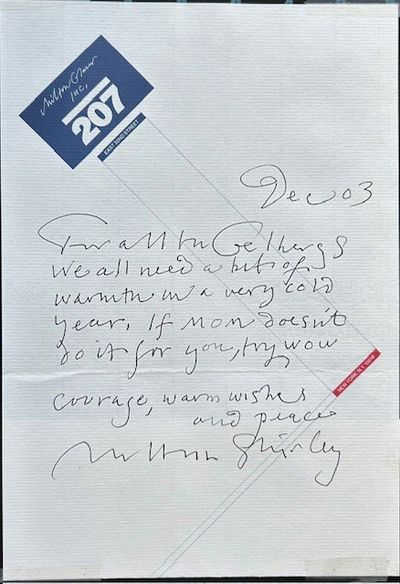 Milton Glaser
INC.
207
EAST 32ND STREET
Dec 03
For all the Gelbergs
We all need a bit of
warmth in a very cold
year. If Mom doesn't
do it for you, try wow
NEW YORK, N.Y. 10016
courage, warm wishes
and peace
Milton Shirley